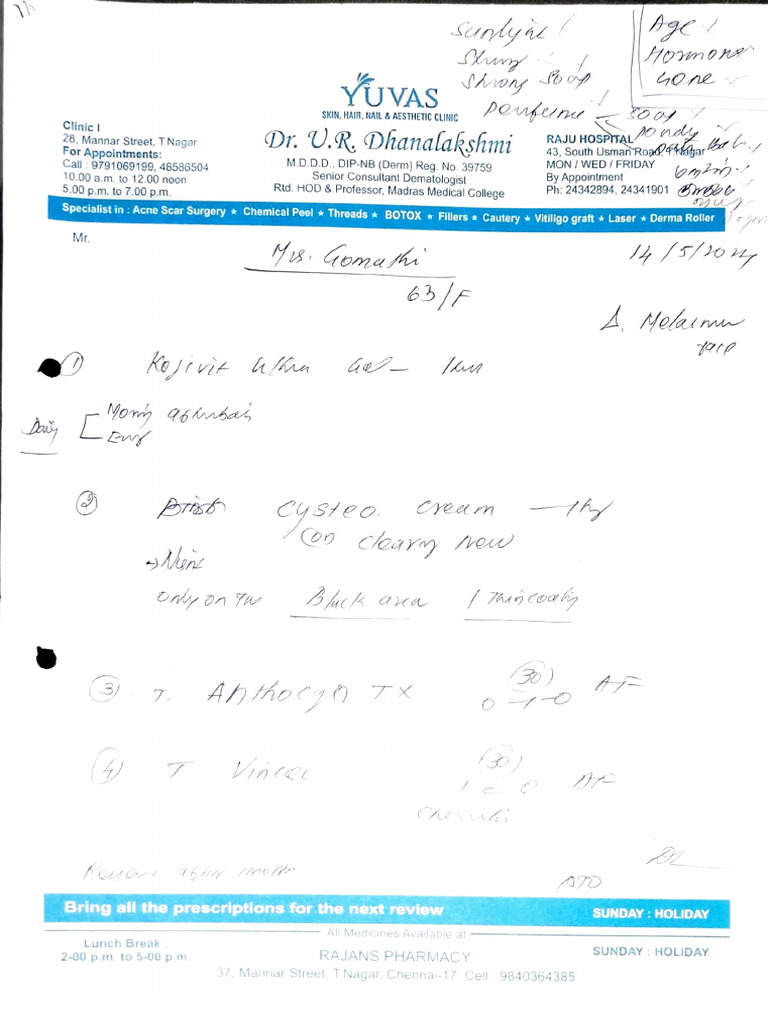 Sunlight
Strong soap
perfume - soap
Age
Hormone
Gene
YUVAS
SKIN, HAIR, NAIL & AESTHETIC CLINIC
Dr. U.R. Dhanalakshmi
M.D.D.D., DIP-NB (Derm) Reg. No. 39759
Senior Consultant Dematologist
Rtd. HOD & Professor, Madras Medical College
Clinic I
28, Mannar Street, T.Nagar
For Appointments:
Call : 9791069199, 48586504
10.00 a.m. to 12.00 noon
5.00 p.m. to 7.00 p.m.
RAJU HOSPITAL
43, South Usman Road, T.Nagar
MON / WED / FRIDAY
By Appointment
Ph: 24342894, 24341901
Specialist in : Acne Scar Surgery ★ Chemical Peel ★ Threads ★ BOTOX ★ Fillers ★ Cautery ★ Vitiligo graft ★ Laser ★ Derma Roller
Mr.
Mrs. Gomathi
63/F
14/5/2024
Δ. Melasma
face
① Kojivit Ultra Gel -
Daily
② Cysteo. cream
on
→ Night
only on the Black area
③ T. Anthocyn TX (30) 0-1-0 AF
④ T (30) AF
Review after 1 month
PTO
Bring all the prescriptions for the next review
SUNDAY : HOLIDAY
Lunch Break :
2-00 p.m. to 5-00 p.m.
All Medicines Available at
RAJANS PHARMACY
37, Mannar Street, T.Nagar, Chennai-17 Cell 9840364385
SUNDAY : HOLIDAY